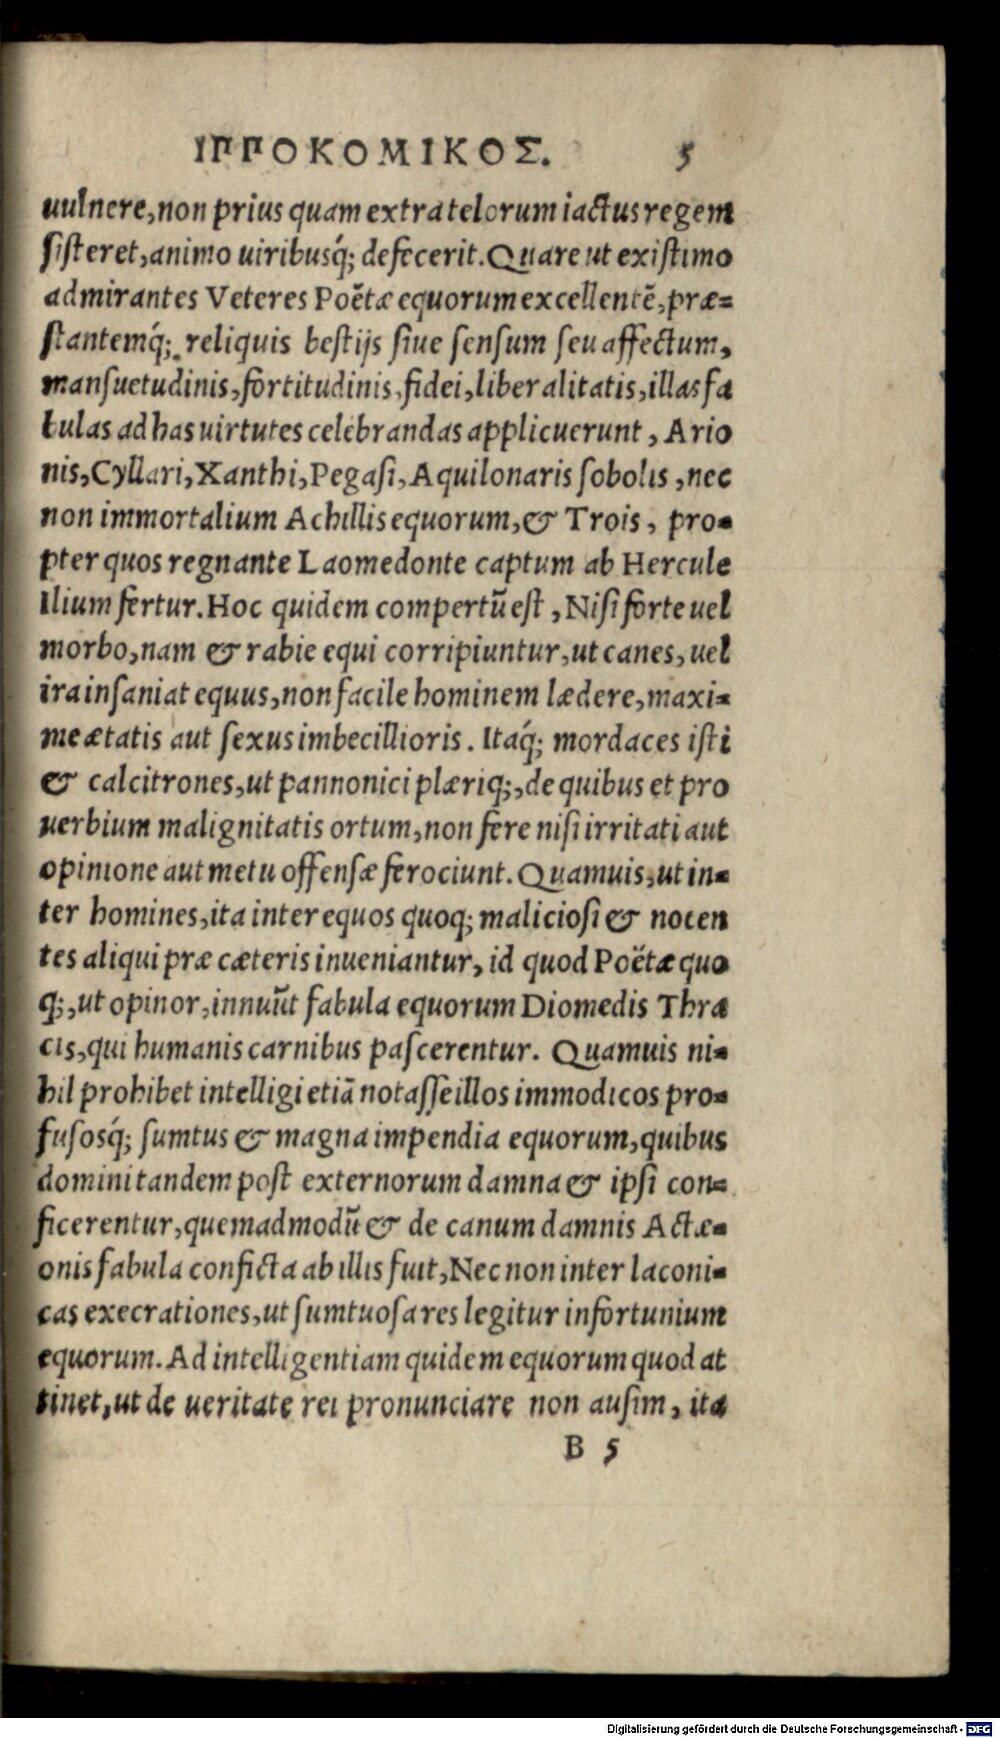 ΙΠΠΟΚΟΜΙΚΟΣ. 5
uulnere, non prius quam extra telorum iactus regem
sisteret, animo uiribusq́; defecerit. Quare ut existimo
admirantes Veteres Poëtæ equorum excellentē, præ-
stantemq́; reliquis bestijs siue sensum seu affectum,
mansuetudinis, fortitudinis, fidei, liberalitatis, illas fa
bulas ad has uirtutes celebrandas applicuerunt, Ario
nis, Cyllari, Xanthi, Pegasi, Aquilonaris sobolis, nec
non immortalium Achillis equorum, & Trois, pro-
pter quos regnante Laomedonte captum ab Hercule
Ilium fertur. Hoc quidem compertũ est, Nisi forte uel
morbo, nam & rabie equi corripiuntur, ut canes, uel
ira insaniat equus, non facile hominem lædere, maxi-
me ætatis aut sexus imbecillioris. Itaq́; mordaces isti
& calcitrones, ut pannonici plæriq;, de quibus et pro
uerbium malignitatis ortum, non fere nisi irritati aut
opinione aut metu offensæ ferociunt. Quamuis, ut in-
ter homines, ita inter equos quoq; maliciosi & nocen
tes aliqui præ cæteris inueniantur, id quod Poëtæ quo
q;, ut opinor, innuũt fabula equorum Diomedis Thra
cis, qui humanis carnibus pascerentur. Quamuis ni-
hil prohibet intelligi etiā notasse illos immodicos pro-
fusosq́; sumtus & magna impendia equorum, quibus
domini tandem post externorum damna & ipsi con-
ficerentur, quemadmodũ & de canum damnis Actæ-
onis fabula conficta ab illis fuit, Nec non inter laconi-
cas execrationes, ut sumtuosa res legitur infortunium
equorum. Ad intelligentiam quidem equorum quod at
tinet, ut de ueritate rei pronunciare non ausim, ita
B 5
Digitalisierung gefördert durch die Deutsche Forschungsgemeinschaft - DFG